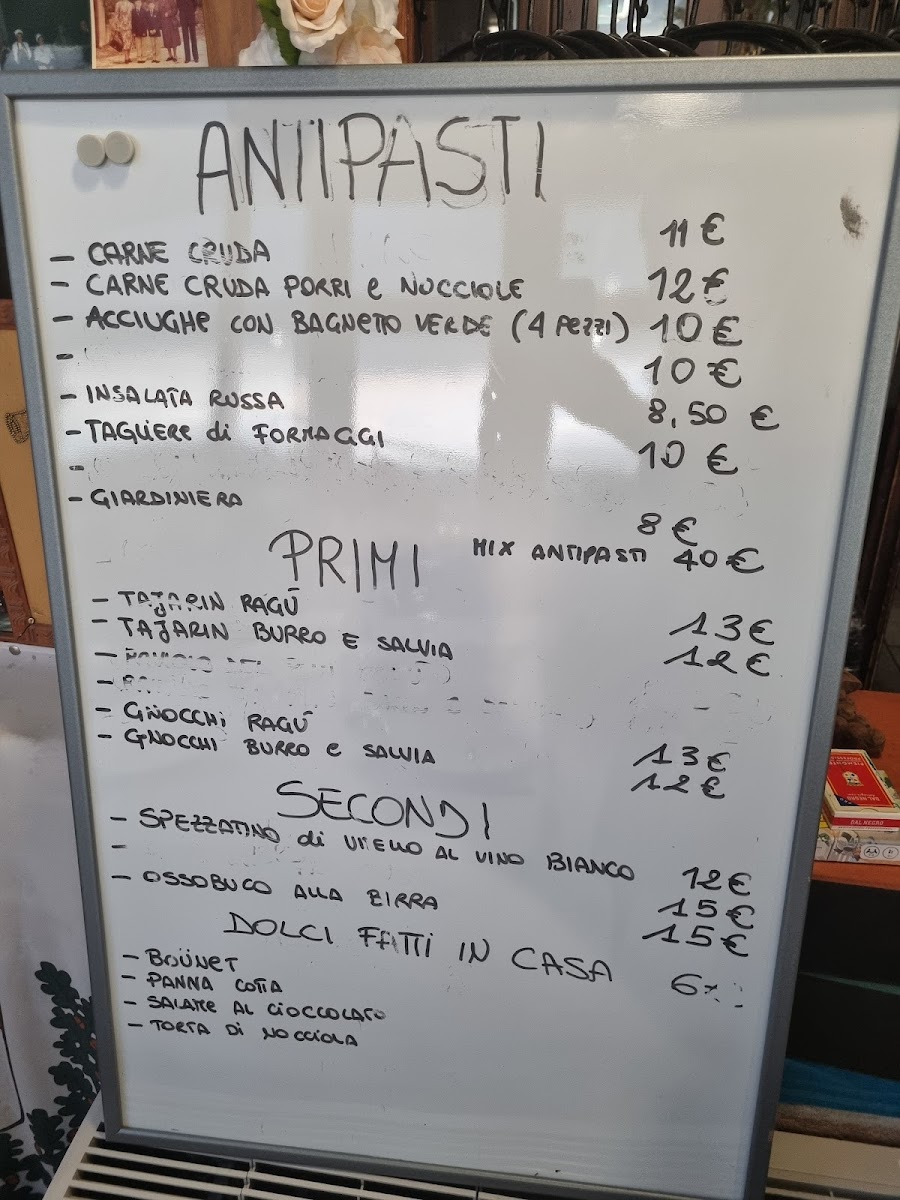 ANTIPASTI
- CARNE CRUDA 11 €
- CARNE CRUDA PORRI e NOCCIOLE 12 €
- ACCIUGHE CON BAGNETTO VERDE (4 PEZZI) 10 €
- 10 €
- INSALATA RUSSA 8,50 €
- TAGLIERE di FORMAGGI 10 €
-
- GIARDINIERA 8 €
MIX ANTIPASTI 40 €
PRIMI
- TAJARIN RAGÙ 13 €
- TAJARIN BURRO E SALVIA 12 €
-
-
- GNOCCHI RAGÙ 13 €
- GNOCCHI BURRO e SALVIA 12 €
SECONDI
- SPEZZATINO di VITELLO AL VINO BIANCO 12 €
- 15 €
- OSSOBUCO ALLA BIRRA 15 €
DOLCI FATTI IN CASA 6
- BOÜNET
- PANNA COTTA
- SALAME AL CIOCCOLATO
- TORTA DI NOCCIOLA
DAL NEGRO